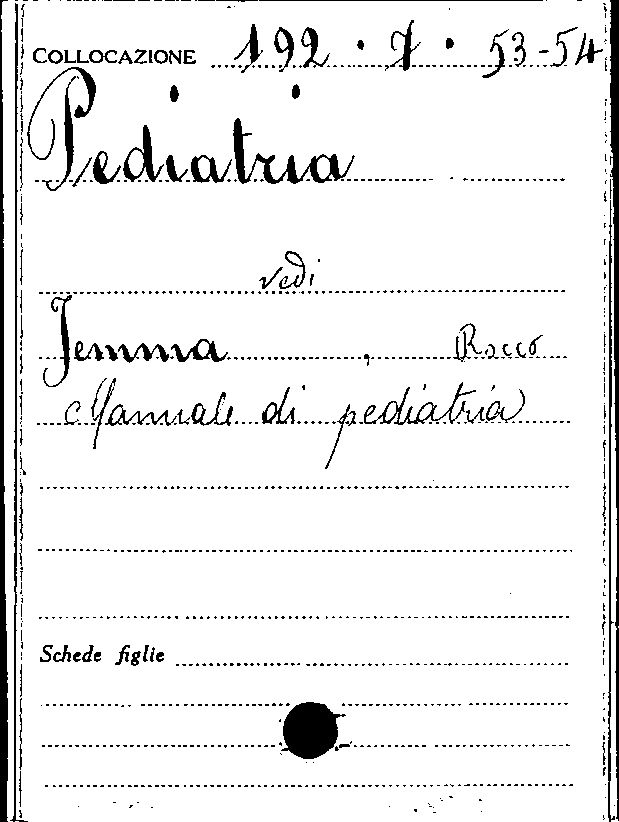 COLLOCAZIONE 192 . 7 . 53-54
Pediatria
vedi
Jemma, Rocco
Manuale di pediatria
Schede figlie